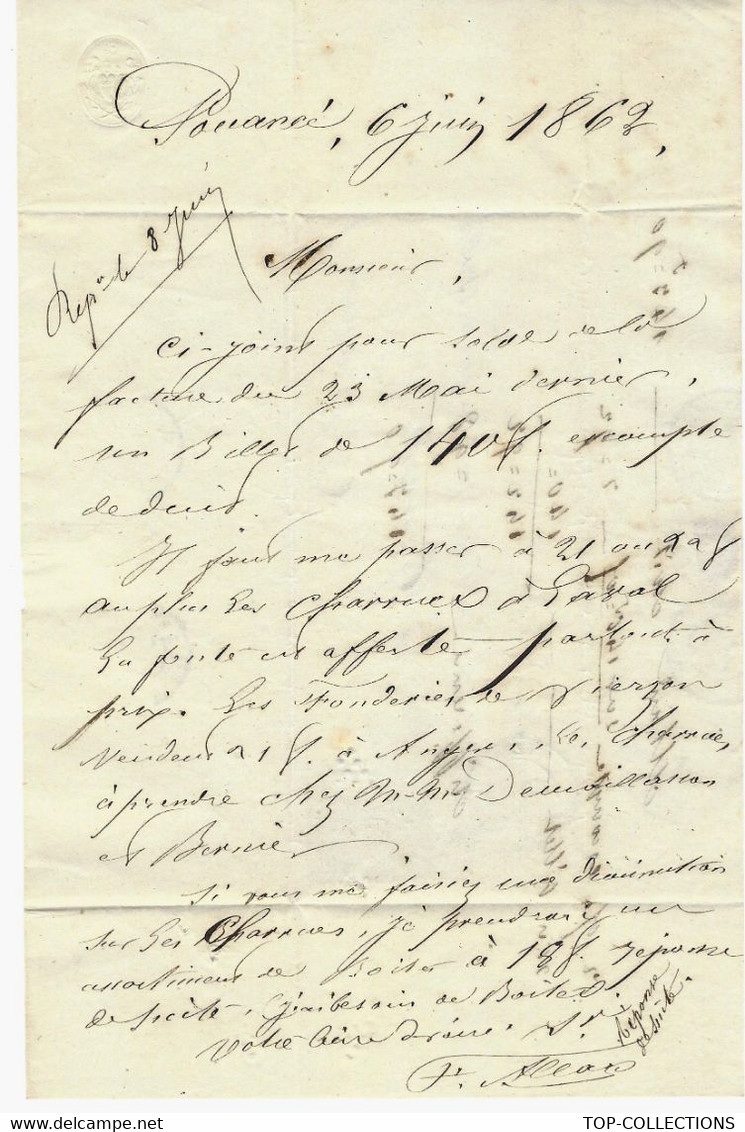 Pouancé, 6 juin 1862,
Rep. le 8 Juin
Monsieur,
Ci-joint pour solde de la
facture du 23 Mai dernier,
un Billet de 140 f. escompte
deduit.
Il faut me passer à 21 ou
au plus les Charrues à Laval
La fonte est offerte partout à
prix. Les Fonderies de Vierzon
Vendent 21 f. à Angers, les Charrues
à prendre chez M.M.
et Bernier
Si vous me faisiez une diminution
sur les Charrues, je prendrai un
assortiment de Boites à 18 f. reponse
de suite, j'ai besoin de Boites
Votre bien devoué Sr.
Reponse
de suite.
Fr. Allard
TOP-COLLECTIONS